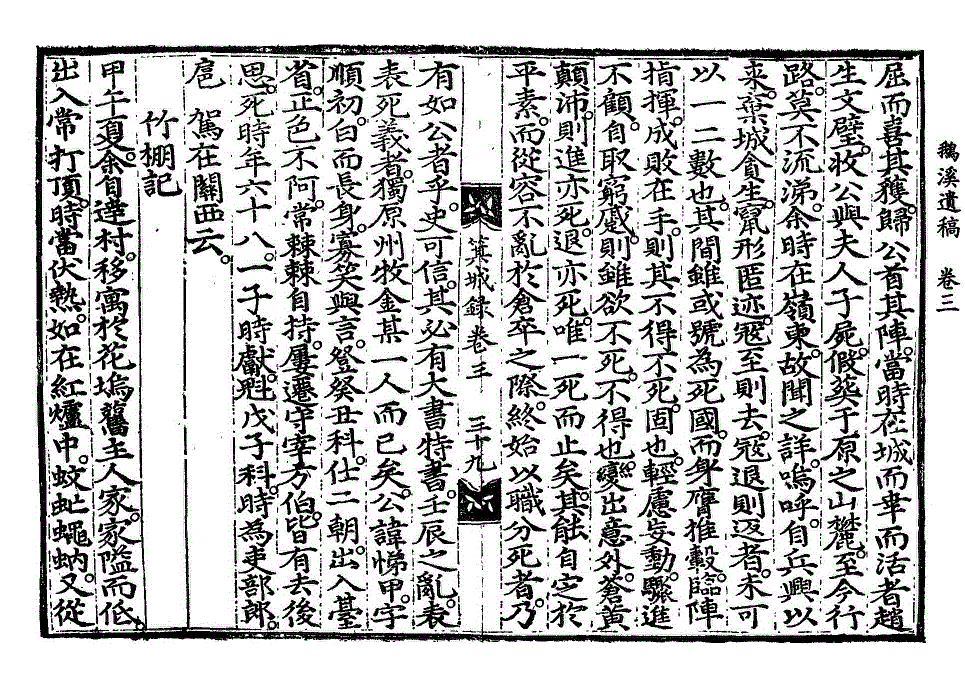 鵝溪遺稿　卷三
屈而喜其獲。歸公首其陣。當時在城而幸而活者趙
生文璧。收公與夫人子屍。假葬于原之山麓。至今行
路。莫不流涕。余時在嶺東。故聞之詳。嗚呼。自兵興以
來。棄城貪生。竄形匿迹。寇至則去。寇退則返者。未可
以一二數也。其間雖或號為死國。而身膺推轂。臨陣
指揮。成敗在手。則其不得不死。固也。輕慮妄動。驟進
不顧。自取窮蹙。則雖欲不死。不得也。變出意外。蒼黃
顛沛。則進亦死。退亦死。唯一死而止矣。其能自定於
平素。而從容不亂於倉卒之際。終始以職分死者。乃
箕城錄 卷三　三十九
有如公者乎。史可信。其必有大書特書。壬辰之亂。表
表死義者。獨原州牧金某一人而已矣。公諱悌甲。字
順初。白而長身。寡笑與言。登癸丑科。仕二朝。出入臺
省。正色不阿。常棘棘自持。屢遷守宰方伯。皆有去後
思。死時年六十八。一子時獻。魁戊子科。時為吏部郎。
扈　駕在關西云。
竹棚記
甲午夏。余自達村。移寓於花塢舊主人家。家隘而低。
出入常打頂。時當伏熱。如在紅爐中。蚊虻蠅蚋。又從